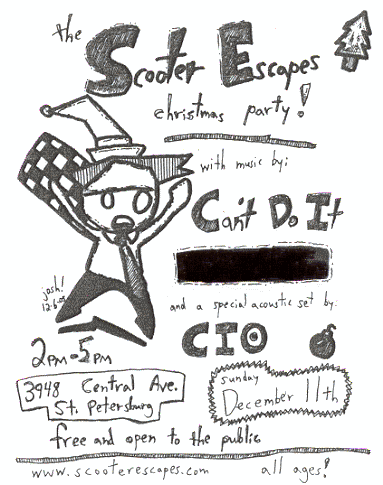 the
Scooter Escapes
christmas party!
with music by:
Can't Do It
and a special acoustic set by:
CIO
josh!
2PM-5PM
3948 Central Ave.
St. Petersburg
sunday
December 11th
free and open to the public
www.scooterescapes.com all ages!